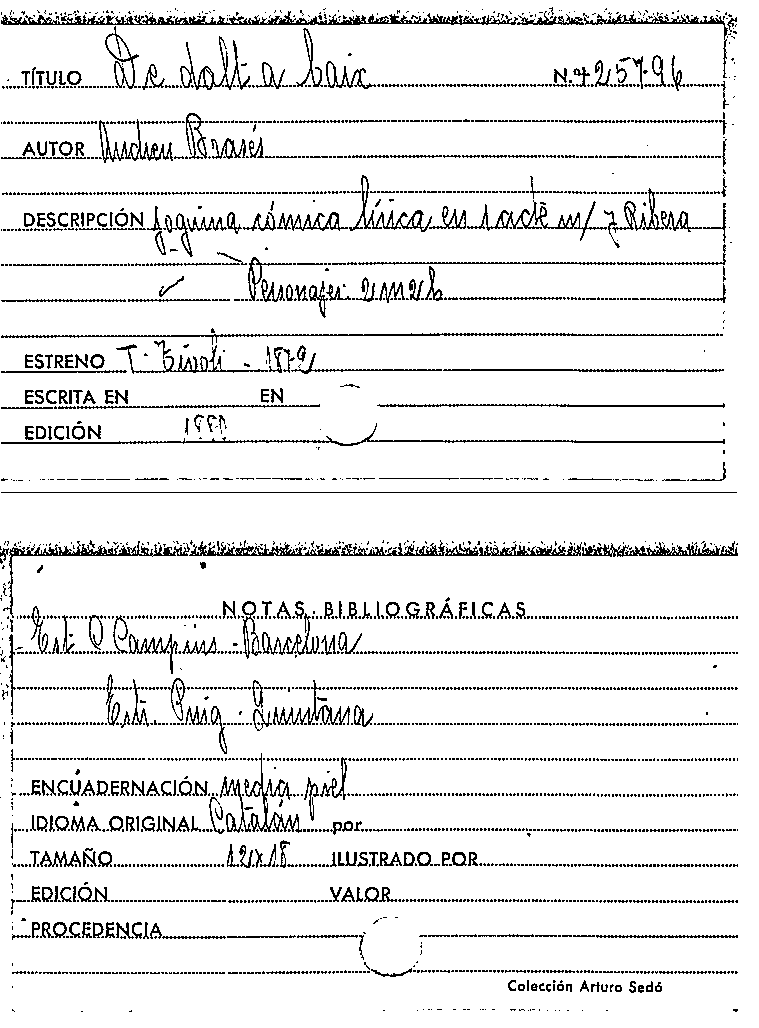 TÍTULO De dalt a baix N.º 25796
AUTOR Andreu Brasés
DESCRIPCIÓN Joguina cómica lírica en 1 acte m/ J Ribera
Personajes: 2 m 2 h
ESTRENO T. Tívoli - 1879
ESCRITA EN EN
EDICIÓN 1880
NOTAS BIBLIOGRÁFICAS
Est C Campins - Barcelona
Esti. Puig - Quintana
ENCUADERNACIÓN media piel
IDIOMA ORIGINAL Catalán por
TAMAÑO 12x18 ILUSTRADO POR
EDICIÓN VALOR
PROCEDENCIA
Colección Arturo Sedó